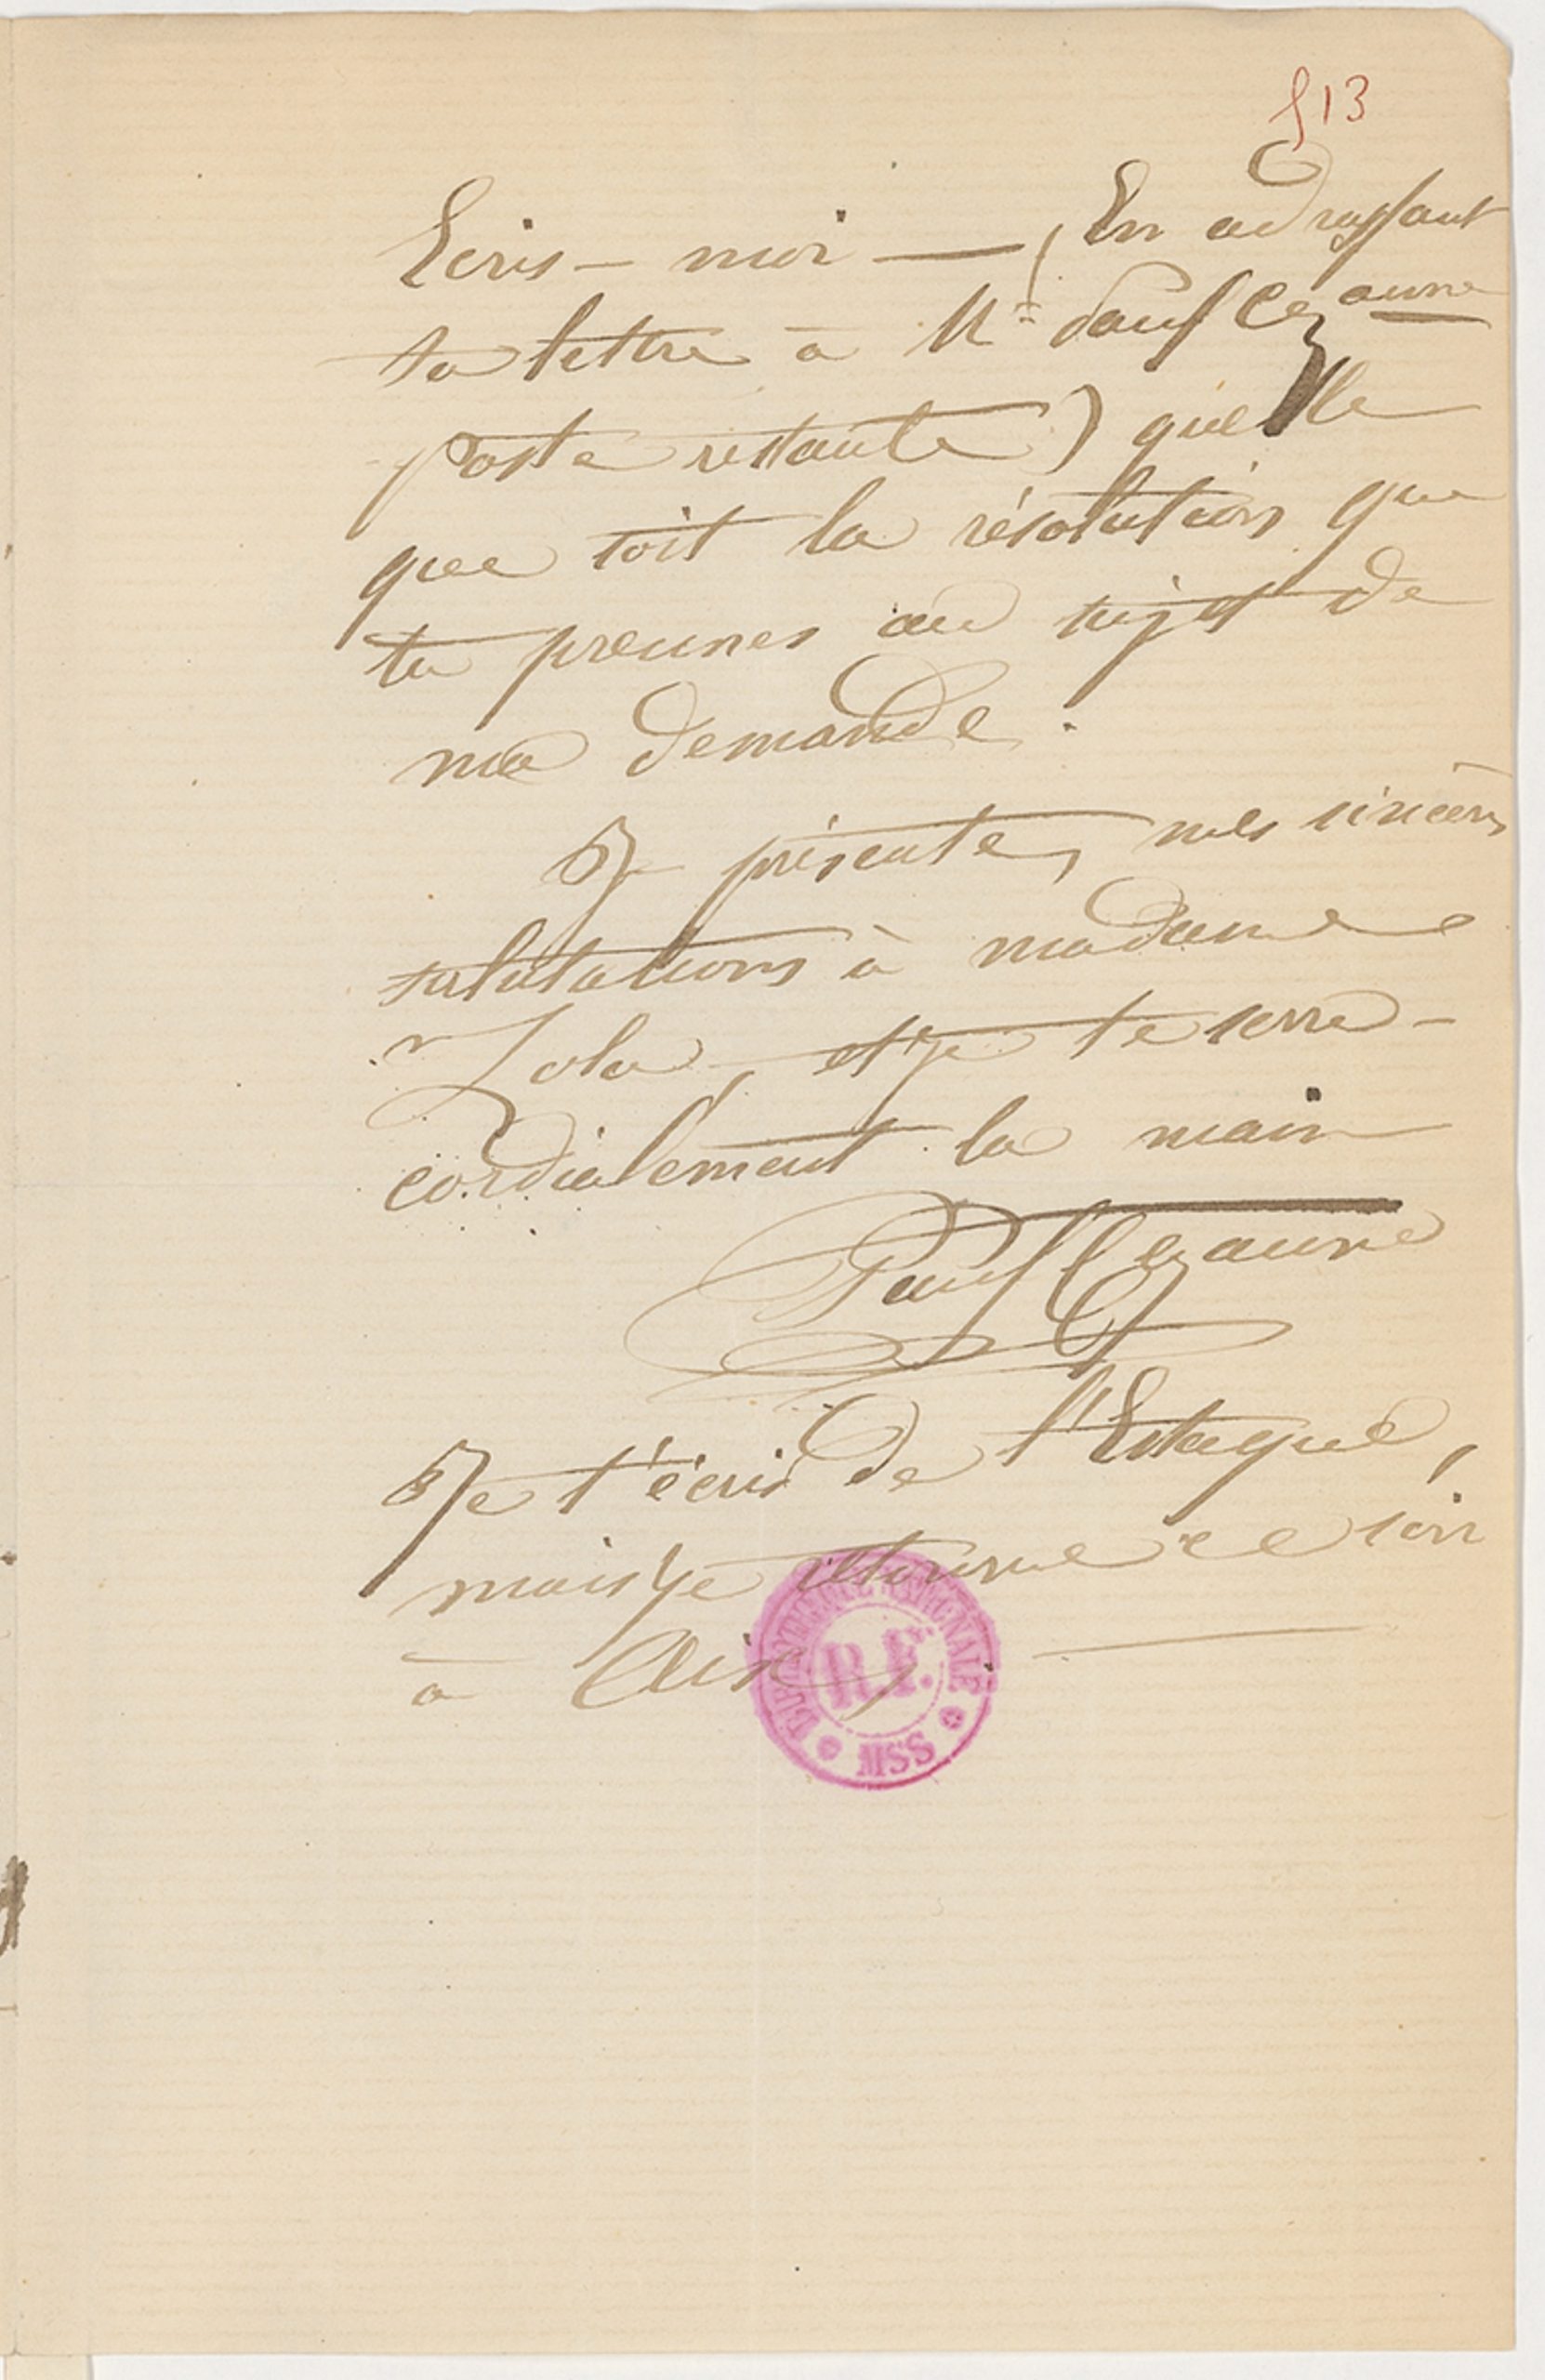 513
Ecris-moi — (En adressant
ta lettre à Mr Paul Cezanne
poste restante) quelle
que soit la résolution que
tu prennes au sujet de
ma demande.
Je présente, mes sincères
salutations à madame
Zola, et je te serre
cordialement la main
Paul Cezanne
Je t'écris de l'Estaque,
mais je retourne ce soir
à Aix. —
BIBLIOTHEQUE NATIONALE
R.F.
MSS